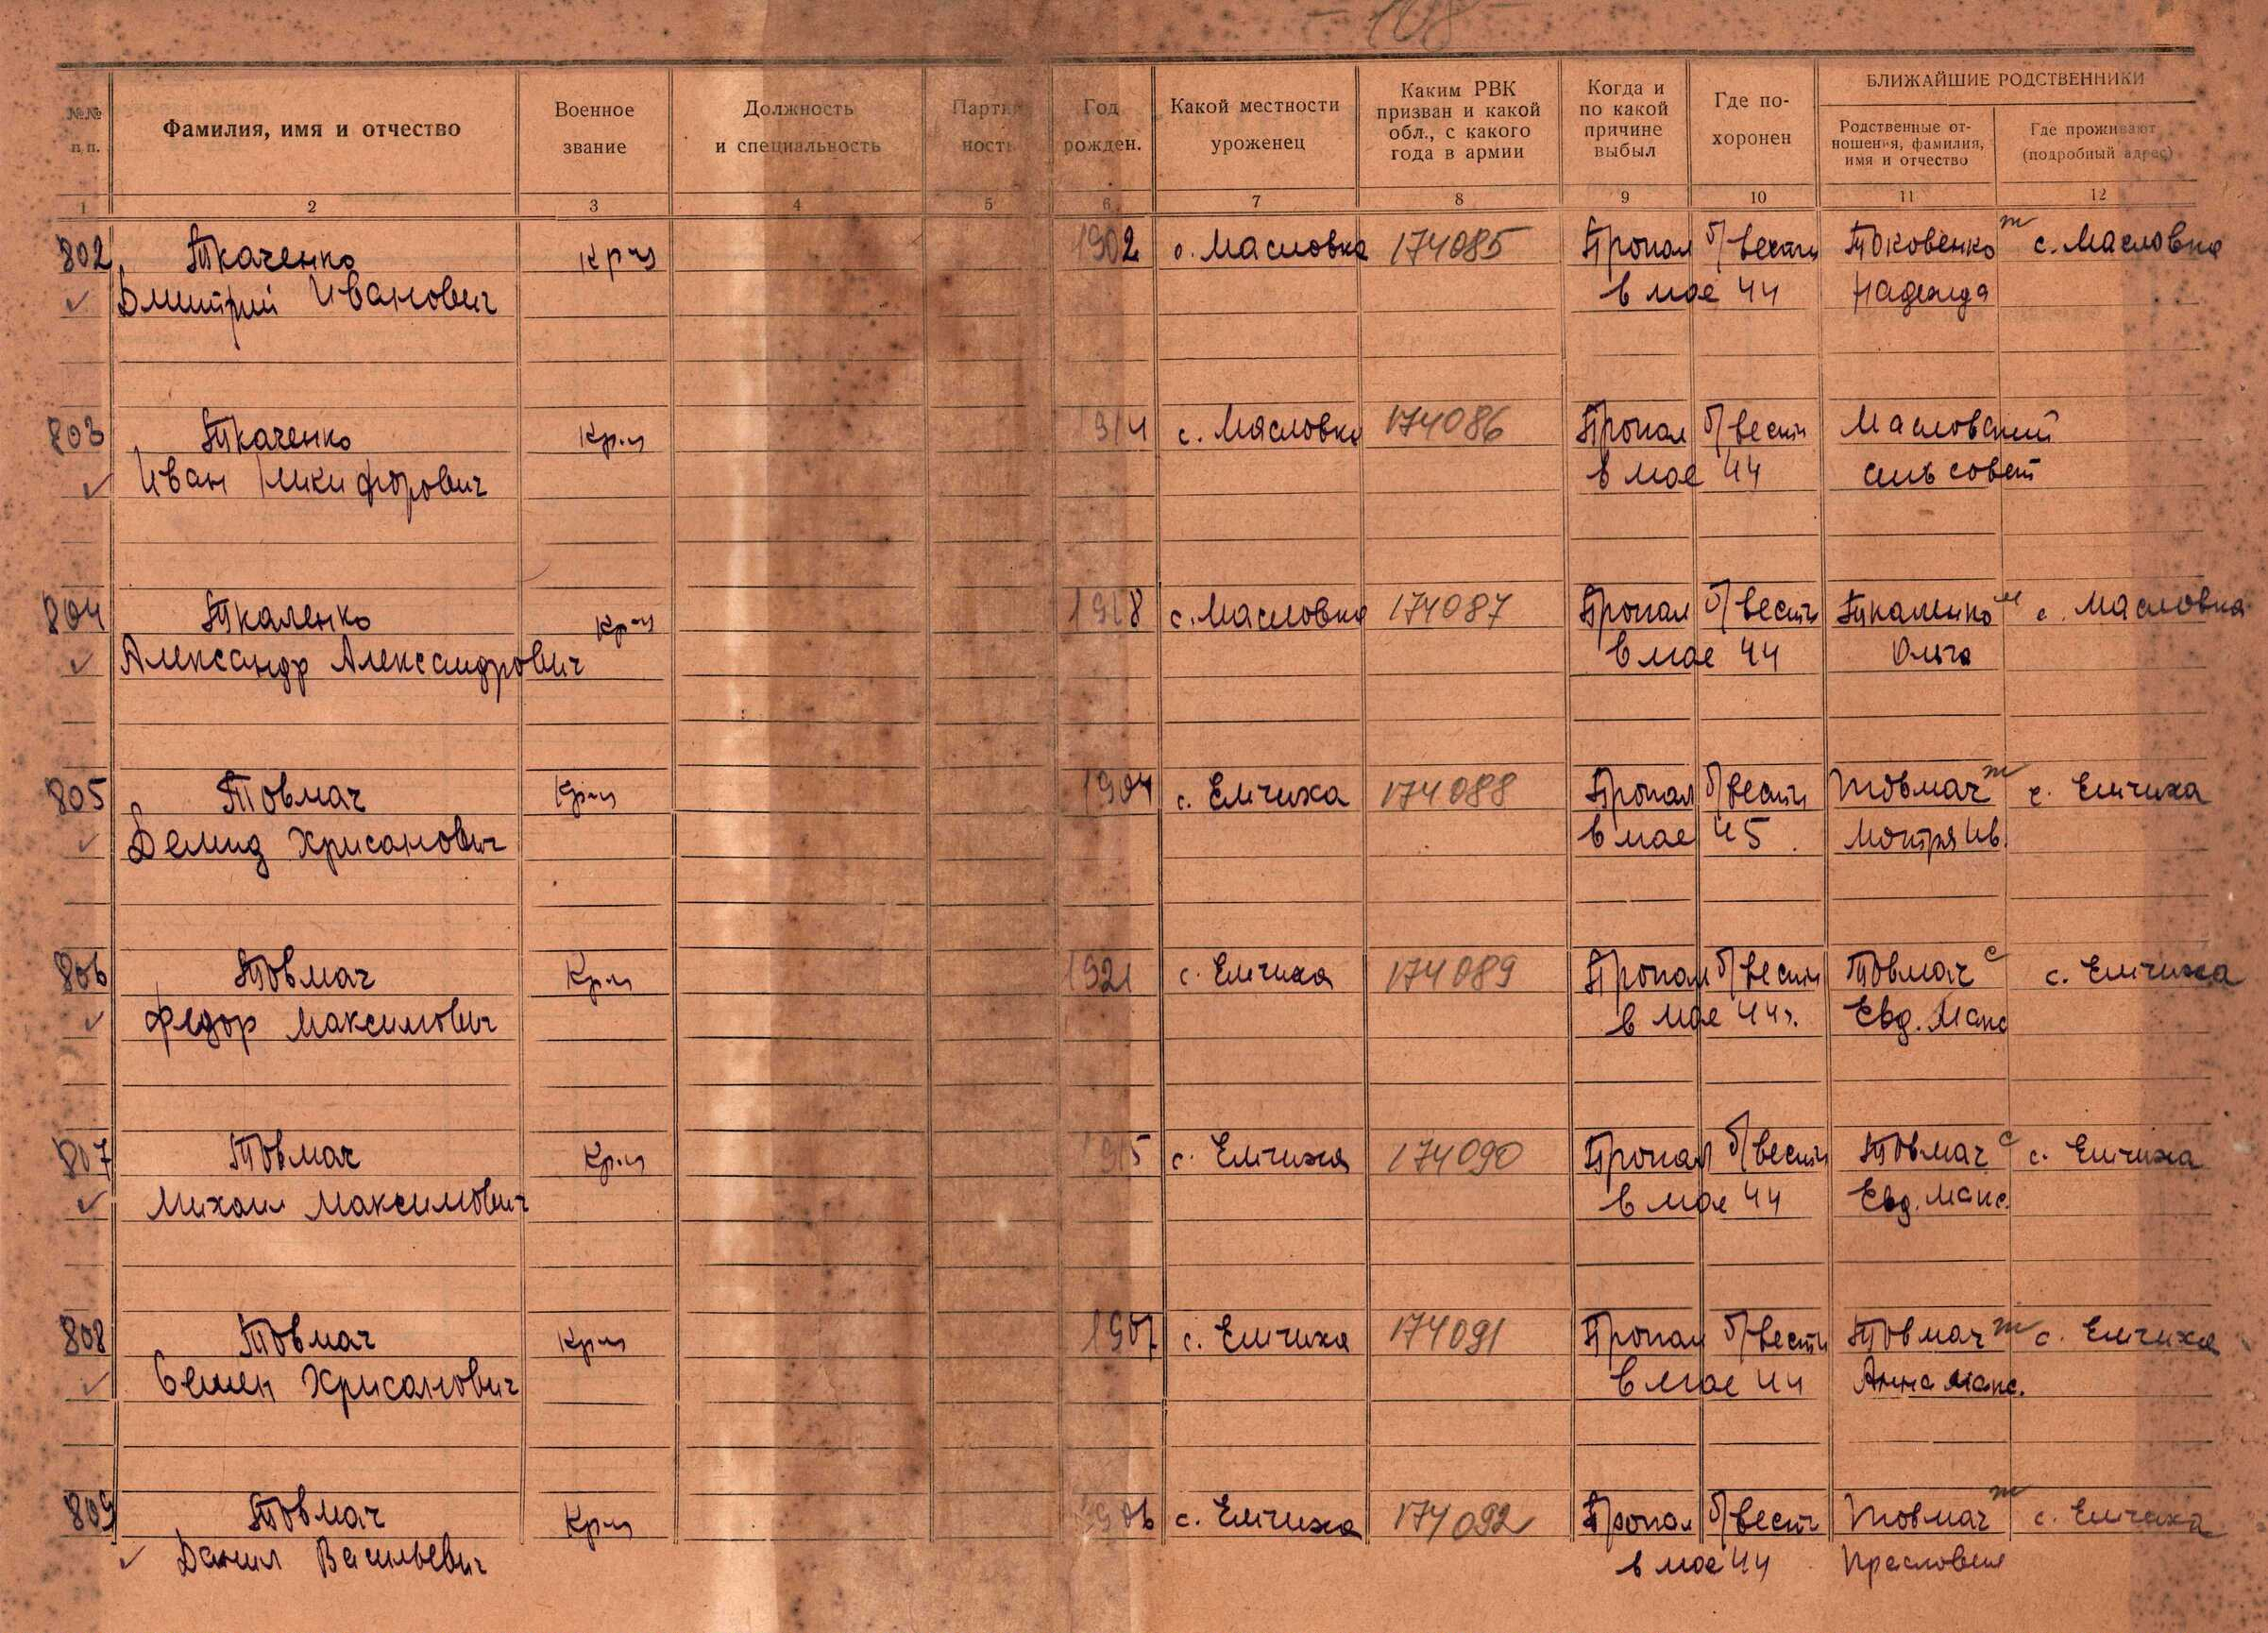 - 108 -
№№ п.п.
Фамилия, имя и отчество
Военное звание
Должность и специальность
Партий ность
Год рожден.
Какой местности уроженец
Каким РВК призван и какой обл., с какого года в армии
Когда и по какой причине выбыл
Где по- хоронен
БЛИЖАЙШИЕ РОДСТВЕННИКИ
Родственные от- ношения, фамилия, имя и отчество
Где проживают (подробный адрес)
1 2 3 4 5 6 7 8 9 10 11 12
802 Ткаченко кр-ц 1902 с. Масловка 174085 Пропал б/вести Токовенко ж с. Масловка
Дмитрий Иванович в мае 44 Надежда
803 Ткаченко кр-ц 1914 с. Масловка 174086 Пропал б/вести Масловский
Иван Никифорович в мае 44 сельсовет
804 Ткаленко кр-ц 1918 с. Масловка 174087 Пропал б/вести Ткаленко м с. Масловка
Александр Александрович в мае 44 Ольга
805 Товмач кр-ц 1904 с. Емчиха 174088 Пропал б/вести Товмач ж с. Емчиха
Демид Хрисанович в мае 45 Мотря Ив.
806 Товмач кр-ц 1921 с. Емчиха 174089 Пропал б/вести Товмач с с. Емчиха
Федор Максимович в мае 44г. Евд. Макс
807 Товмач кр-ц 1915 с. Емчиха 174090 Пропал б/вести Товмач с с. Емчиха
Михаил Максимович в мае 44 Евд. Макс.
808 Товмач кр-ц 1907 с. Емчиха 174091 Пропал б/вести Товмач ж с. Емчиха
Семен Хрисанович в мае 44 Анна Макс.
809 Товмач кр-ц 1906 с. Емчиха 174092 Пропал б/вести Товмач ж с. Емчиха
Данил Васильевич в мае 44